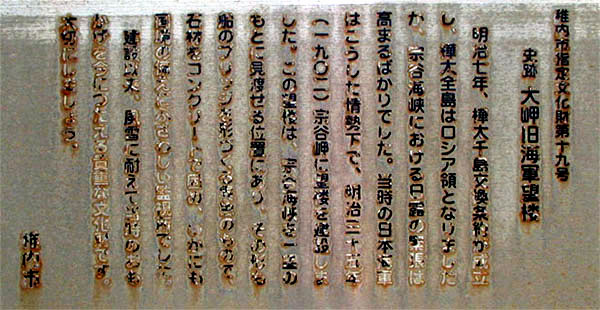 稚内市指定文化財第十九号
史跡 大岬旧海軍望楼
明治七年、樺太千島交換条約が成立
し、樺太全島はロシア領となりました
が、宗谷海峡における日露の緊張は
高まるばかりでした。当時の日本海軍
はこうした情勢下で、明治三十五年
(一九〇二)宗谷岬に望楼を建設しま
した。この望楼は、宗谷海峡を一望の
もとに見渡せる位置にあり、
船のブリッジを形づくる
石材をコンクリートで固め、いかにも
にふさわしい でした。
建設以来、風雪に耐えて当時のおも
かげを今につたえる貴重な文化財です。
大切にしましょう。
稚内市